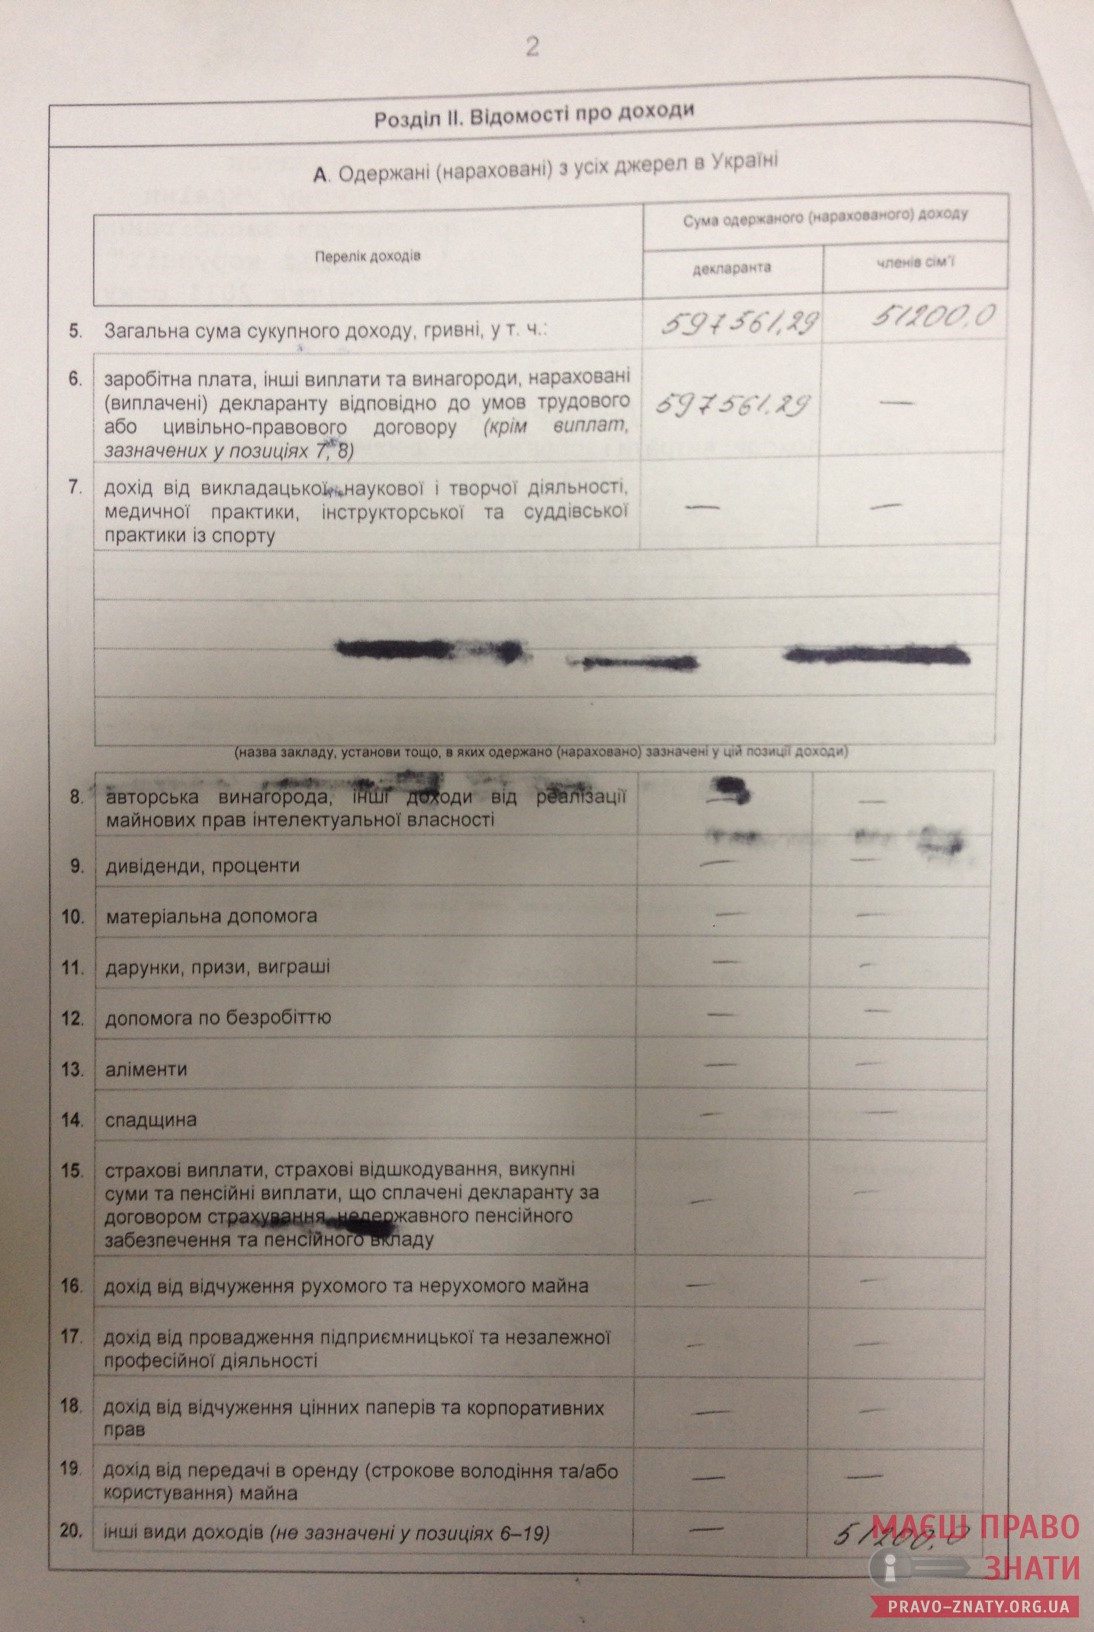 2
Розділ II. Відомості про доходи
А. Одержані (нараховані) з усіх джерел в Україні
Перелік доходів
Сума одержаного (нарахованого) доходу
декларанта
членів сім'ї
5. Загальна сума сукупного доходу, гривні, у т. ч.: 597561,29 51200,0
6. заробітна плата, інші виплати та винагороди, нараховані
(виплачені) декларанту відповідно до умов трудового 597561,29 —
або цивільно-правового договору (крім виплат,
зазначених у позиціях 7, 8)
7. дохід від викладацької, наукової і творчої діяльності,
медичної практики, інструкторської та суддівської — —
практики із спорту
(назва закладу, установи тощо, в яких одержано (нараховано) зазначені у цій позиції доходи)
8. авторська винагорода, інші доходи від реалізації — —
майнових прав інтелектуальної власності
9. дивіденди, проценти — —
10. матеріальна допомога — —
11. дарунки, призи, виграші — —
12. допомога по безробіттю — —
13. аліменти — —
14. спадщина — —
15. страхові виплати, страхові відшкодування, викупні
суми та пенсійні виплати, що сплачені декларанту за — —
договором страхування, недержавного пенсійного
забезпечення та пенсійного вкладу
16. дохід від відчуження рухомого та нерухомого майна — —
17. дохід від провадження підприємницької та незалежної — —
професійної діяльності
18. дохід від відчуження цінних паперів та корпоративних — —
прав
19. дохід від передачі в оренду (строкове володіння та/або — —
користування) майна
20. інші види доходів (не зазначені у позиціях 6–19) — 51200,0
МАЄШ ПРАВО
ЗНАТИ
PRAVO-ZNATY.ORG.UA